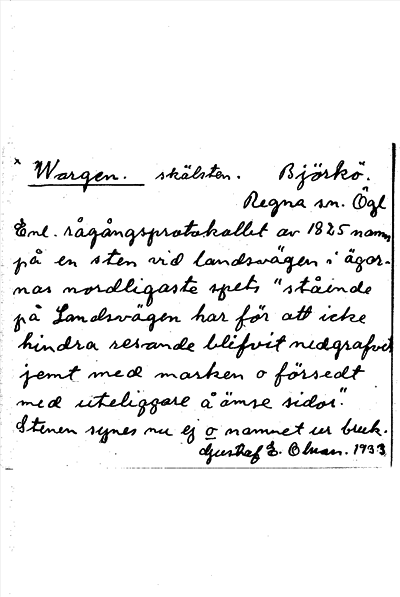 x Wargen. skälsten. Björkö.
Regna sn. Ögl
Enl. rågångsprotokollet av 1825 namn
på en sten vid landsvägen i ägor-
nas nordligaste spets "stående
på Landsvägen har för att icke
hindra resande blifvit nedgrafvit
jemt med marken o försedt
med uteliggare å ömse sidor".
Stenen synes nu ej o namnet ur bruk.
Gustaf E. 1933